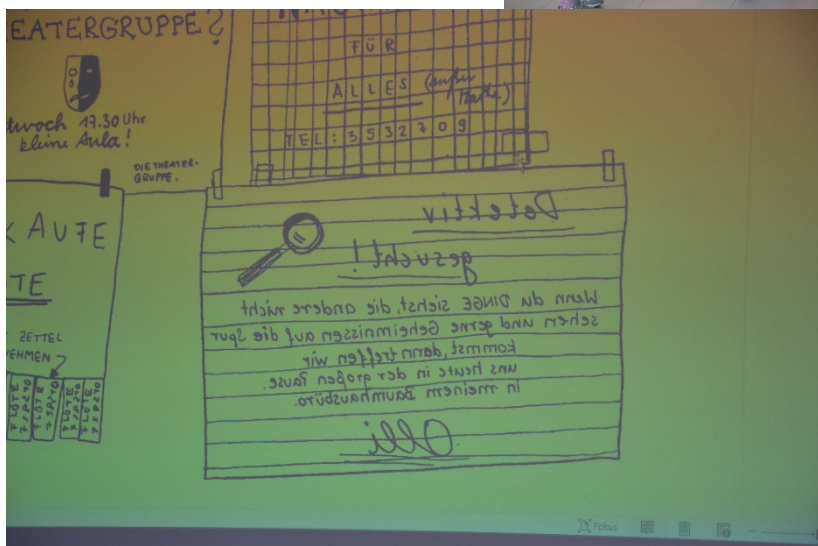 EATERGRUPPE?
twoch 17.30 Uhr
kleine Aula!
DIE THEATER-
GRUPPE.
FÜR
ALLES (außer
Mathe)
TEL: 3532709
KAUFE
TE
ZETTEL
EHMEN
FLÖTE
FLÖTE
FLÖTE
FLÖTE
Detektiv
gesucht!
Wenn du DINGE siehst, die andere nicht
sehen und gerne Geheimnissen auf die Spur
kommst, dann treffen wir
uns heute in der großen Pause.
in meinem Baumhausbüro.
Olli
Fokus